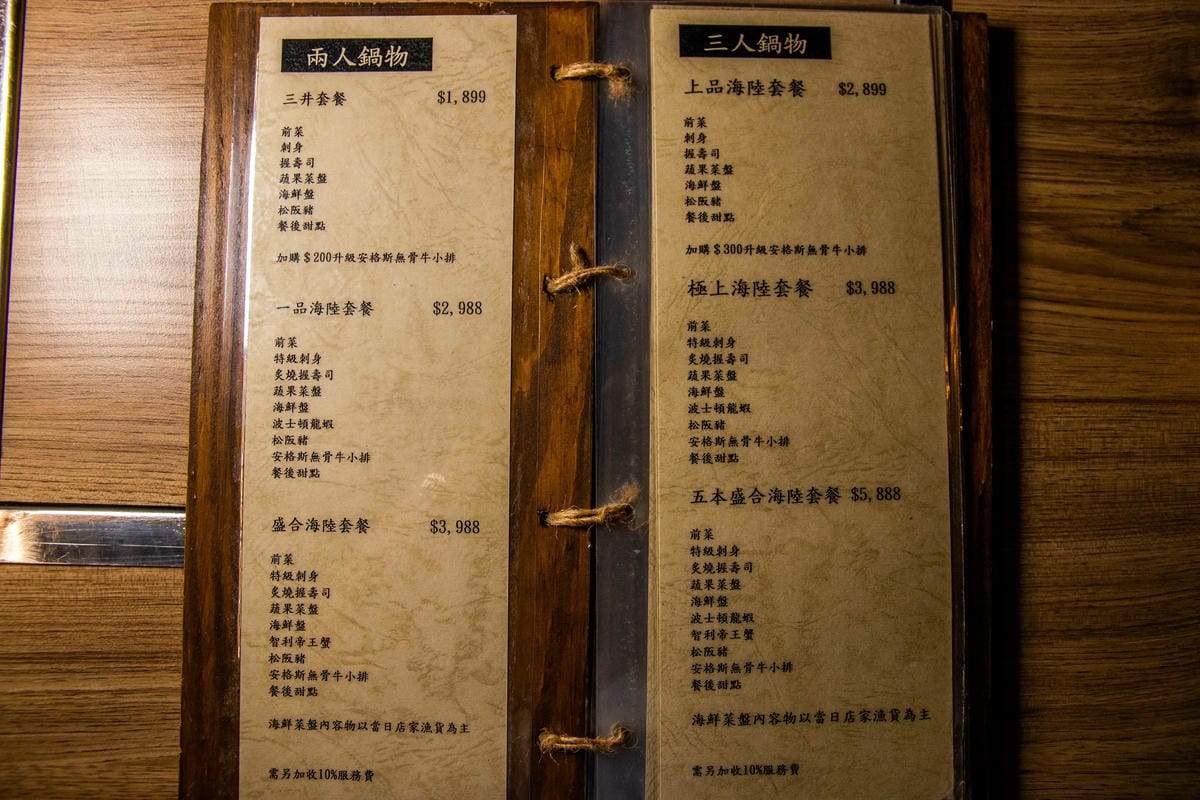 兩人鍋物
三井套餐 $1,899
前菜
刺身
握壽司
蔬果菜盤
海鮮盤
松阪豬
餐後甜點
加購＄200升級安格斯無骨牛小排
一品海陸套餐 $2,988
前菜
特級刺身
炙燒握壽司
蔬果菜盤
海鮮盤
波士頓龍蝦
松阪豬
安格斯無骨牛小排
餐後甜點
盛合海陸套餐 $3,988
前菜
特級刺身
炙燒握壽司
蔬果菜盤
海鮮盤
智利帝王蟹
松阪豬
安格斯無骨牛小排
餐後甜點
海鮮菜盤內容物以當日店家漁貨為主
需另加收10%服務費
三人鍋物
上品海陸套餐 $2,899
前菜
刺身
握壽司
蔬果菜盤
海鮮盤
松阪豬
餐後甜點
加購＄300升級安格斯無骨牛小排
極上海陸套餐 $3,988
前菜
特級刺身
炙燒握壽司
蔬果菜盤
海鮮盤
波士頓龍蝦
松阪豬
安格斯無骨牛小排
餐後甜點
五本盛合海陸套餐 $5,888
前菜
特級刺身
炙燒握壽司
蔬果菜盤
海鮮盤
波士頓龍蝦
智利帝王蟹
松阪豬
安格斯無骨牛小排
餐後甜點
海鮮菜盤內容物以當日店家漁貨為主
需另加收10%服務費